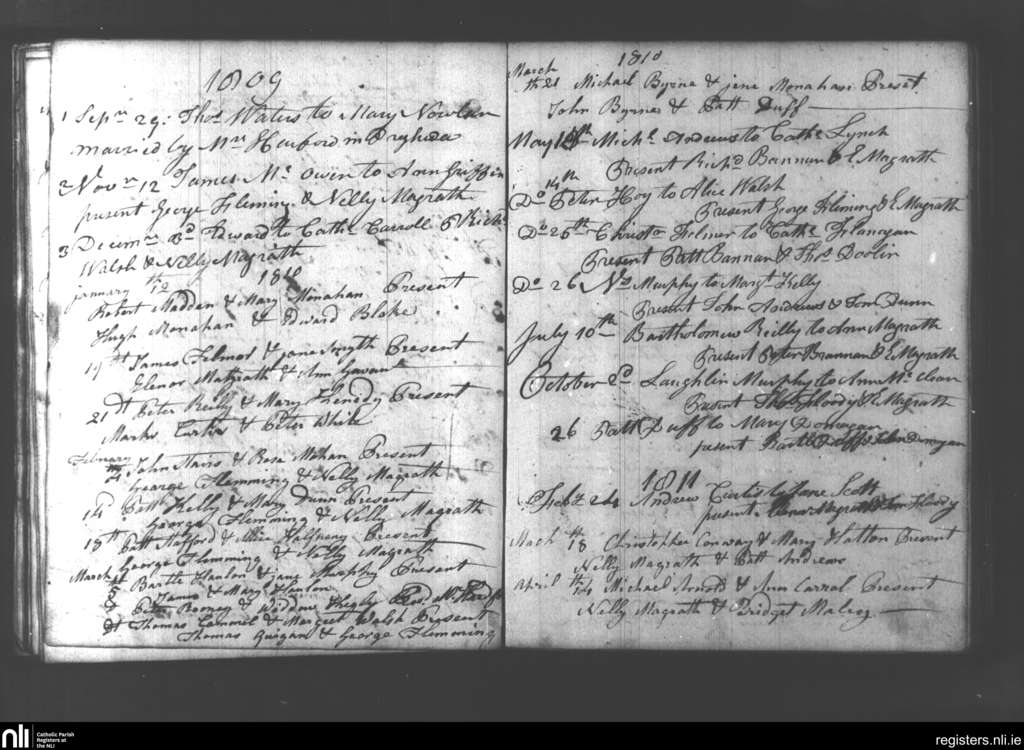 1809
1 Sepr 29: Thos Waters to Mary Nowlan
married by Mr Hexford in Drogheda
2 Novr 12 James Mc Owen to Ann Griffin
present George Fleming & Nelly Magrath
3 Decemr 3d Edward to Cathe Carroll P Richd
Walsh & Nelly Magrath
1810
january th 12
Robert Madden & Mary Monahan Present
Hugh Monahan & Edward Blake
19th James Felmor & jane Smyth Present
Elenor Magrath & Ann Gavan
21st Peter Reilly & Mary Present
Marks Curtis & Peter White
February
John Stairs & Rose Mohan Present
George Flemming & Nelly Magrath
14 Patt Kelly & Mary Dunn Present
George Flemming & Nelly Magrath
18th Patt Stafford & Allice Present
George Flemming & Nelly Magrath
March 5 Bartle Hanlon & jane Murphy Present
James & Mary Hanlon
Peter Barney & Widdow
Thomas & Margret Walsh Present
Thomas Guigan & George Flemming
1810
March th 21 Michael Byrne & jane Monahan Preset
John Byrnes & Patt Duff
May Michl Andrews to Cathe Lynch
Present Richd Bannan & E Magrath
Do 14th Peter Hoy to Alice Walsh
Present George Fleming & E Magrath
Do 25th Christr Felmer to Cathe Flanagan
Present Patt Bannan & Thos Doolin
Do 26 Ns Murphy to Margt Kelly
Present John Andrews & Tom Dunn
July 10th Bartholomew Reilly to Ann Magrath
Present Peter Brannan & E Magrath
October 2d Laughlin Murphy to Ann Mc Clean
Present Thos Flordy & E Magrath
26 Patt Duff to Mary Donnegan
present Bartle Duff & John Donnegan
1811
Feby 24 Andrew Curtis to Jane Scott
present Elenor Magrath
March th 18 Christopher Conway & Mary Hatton Present
Nelly Magrath & Patt Andrews
April th 14 Michael Arnold & Ann Carral Present
Nelly Magrath & Bridget Maley
nli
Catholic Parish
Registers at
the NLI
registers.nli.ie